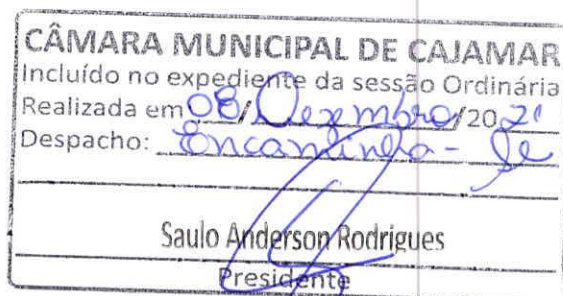 CÂMARA MUNICIPAL DE CAJAMAR
Incluído no expediente da sessão Ordinária
Realizada em 08/Dezembro/2021
Despacho: Encaminha-se
Saulo Anderson Rodrigues
Presidente